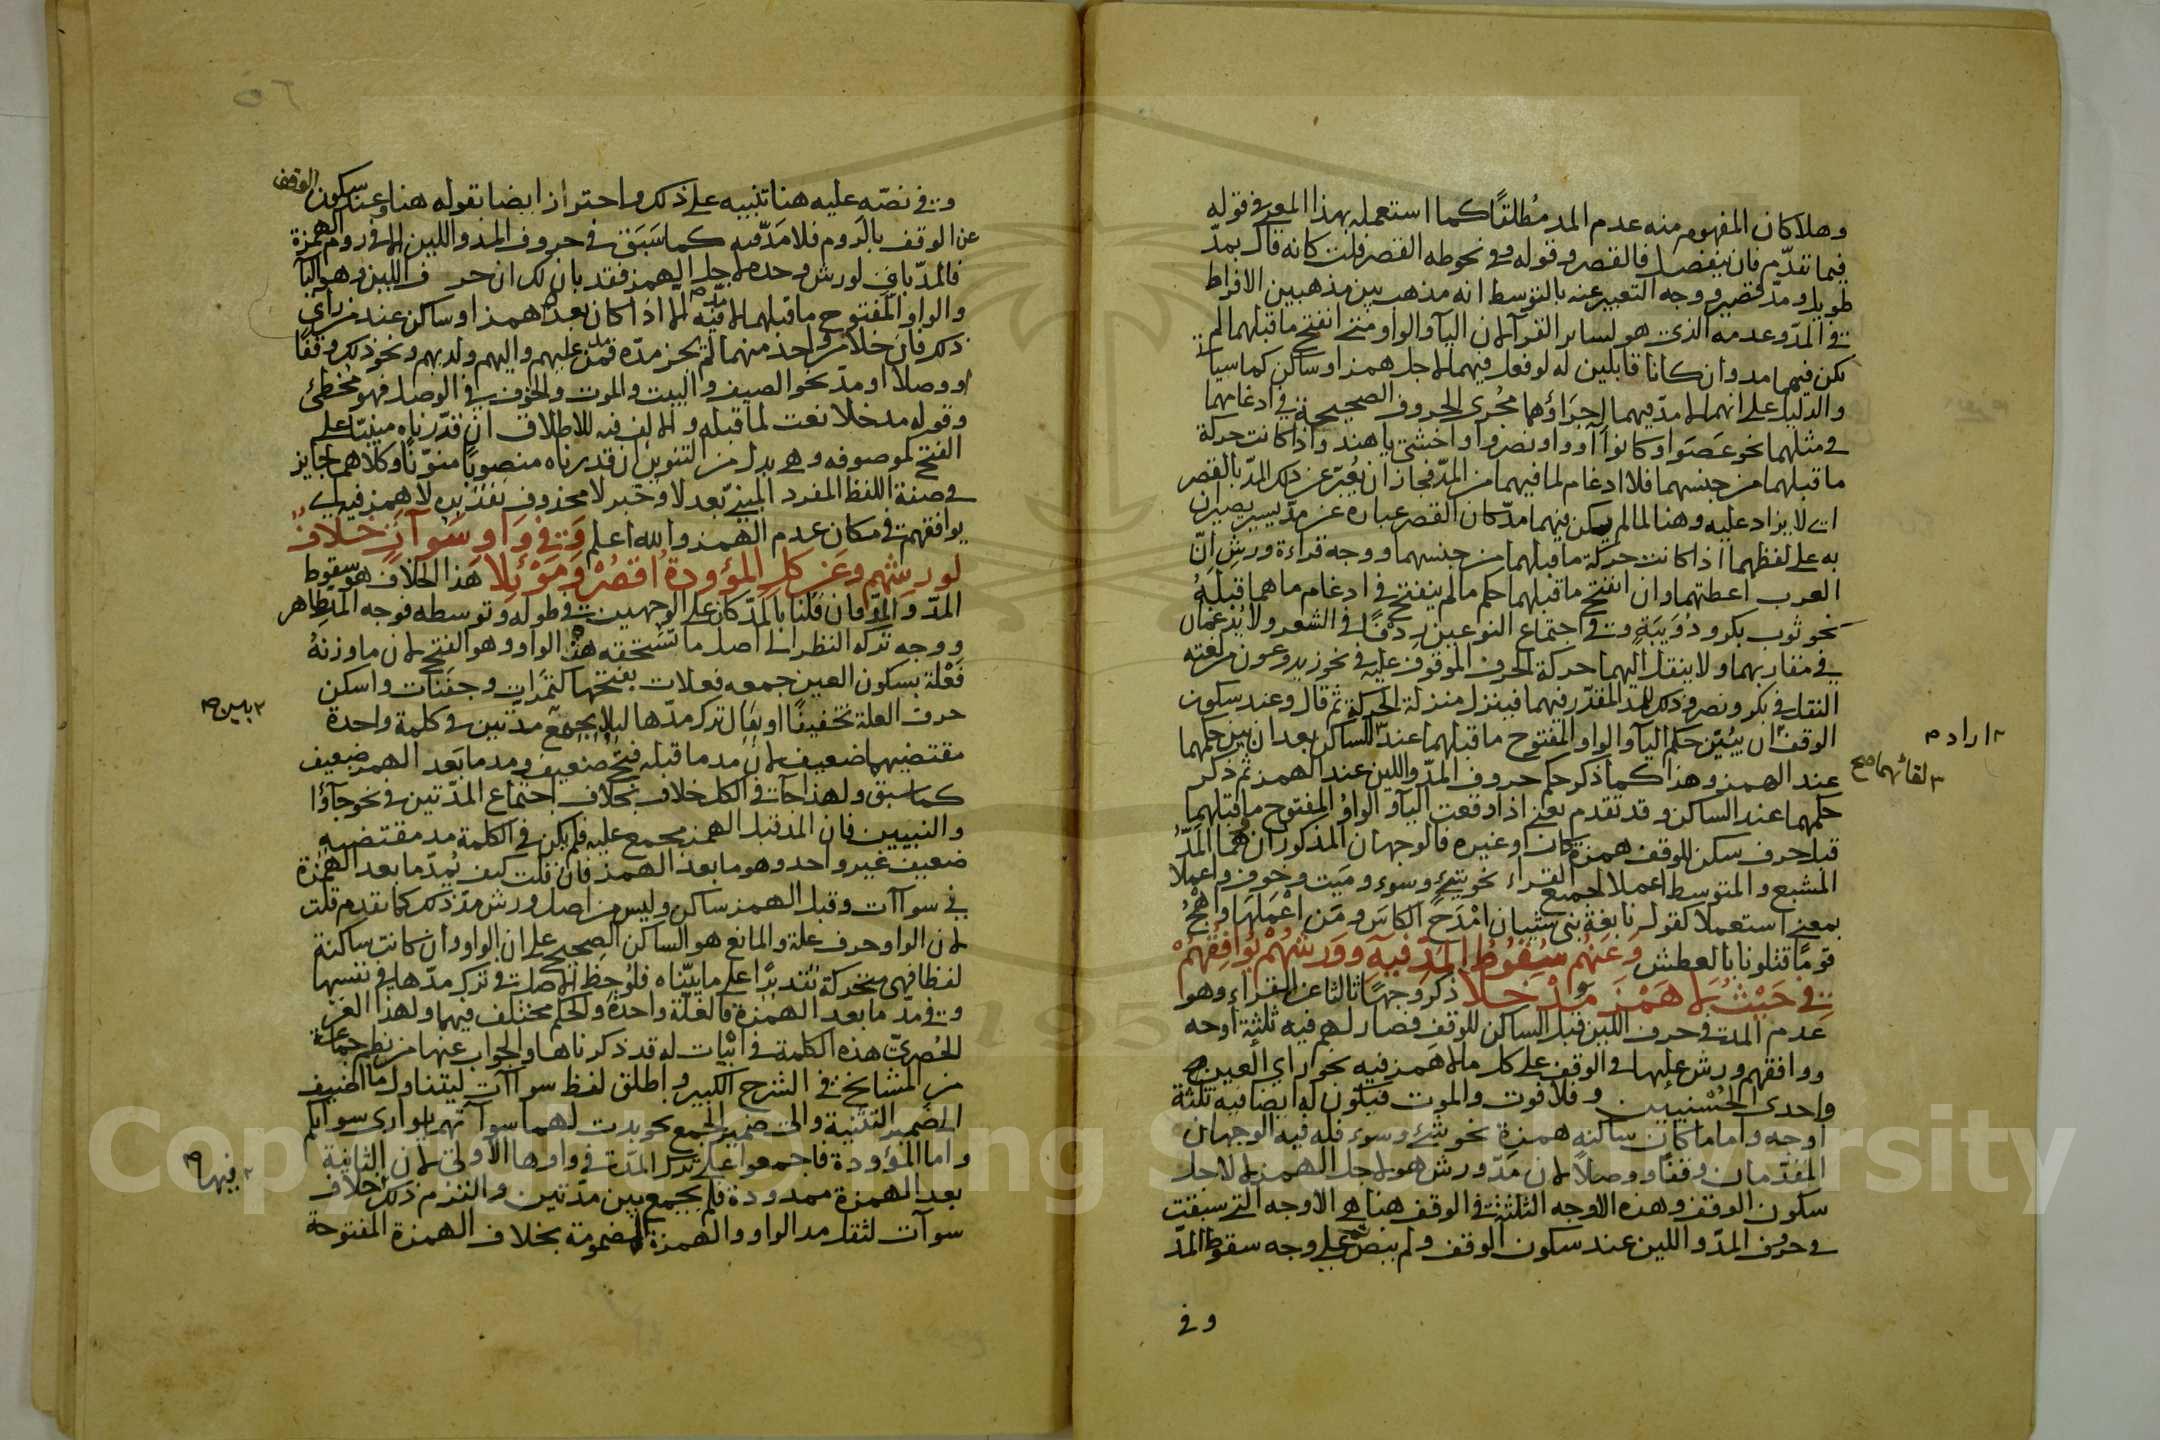 وهلا كان المفهوم منه عدم المد مُطلقًا كما استعمله بهذا المعنى في قوله
فيما تقدم فان ينفصل فالقصر وقوله وفي نحو طه القصر قلت كانه قال بمدّ
طويل ومدّ قصير ووجه التعبير عنه بالتوسط انه مذهب بين مذهبين الافراط
في المدّ وعدمه الذي هو لسائر القرآ لان اليآ والواو متى انفتح ما قبلهما لم
يكن فيهما مد وان كانا قابلين له لو فعل فيهما لاجل همز او ساكن كما سياتي
والدليل على انهما لا مدّ فيهما اِجرَاؤهما مجُرى الحروف الصحيحة في ادغامهما
في مثلهما نحو عَصَوا وكانوا آووا ونصروا واخشي يا هند واذا كانت حركة
ما قبلهما من جنسهما فلا ادغام لما فيهما من المدّ فجاز ان يُعبّر عن ذلك المدّ بالقصر
اي لا يزاد عليه وهنا لما لم يكن فيهما مدّ كان القصر عبارة عن مدّ يسير يصيران
به على لفظهما اذا كانت حركة ما قبلهما من جنسهما ووجه قراءة ورش انّ
العرب اعطتهما وان انفتح ما قبلهما حكم ما لم ينفتح في ادغام ما هما قبلهُ
نحو ثوب بكر ودُوَيبّة وفي اجتماع النوعين رِدْفًا في الشعر ولا يُدغمان
في متقاربهما ولا ينقل اليهما حركة الحرف الموقوف عليه في نحو زيد وعون من لغته
النقل في بكر ونصر وذلك للمد المقدّر فيهما فينزل منزلة الحركة ثم قال وعند سكون
الوقف ان يبيّن حكم اليآ والواو المفتوح ما قبلهما عند الساكن بعد ان بين حكمهما
عند الهمز وهذا كما ذكر حكم حروف المدّ واللين عند الهمز ثم ذكر
حكمهما عند الساكن وقد تقدم يعني اذا وقعت اليآ والواو المفتوح ما قبلهما
قبل حرف سكن للوقف همزة كان او غيره فالوجهان المذكوران هما المدّ
المشبع والمتوسط اعملا لجميع القراء نحو شيء وسوء وميت وخوف واعملا
بمعنى استعملا كقول نابغة بني شيبان امْدَح الكاسَ ومَن اعْمَلَها واهْجُ
قومًا قتلونا بالعطش وعنهم سقوط المد فيه وورشهم يوافقهم
في حيث لا همز مدخلا ذكر وجهًا ثالثا عن القراء وهو
عدم المد في حرف اللين قبل الساكن للوقف فصار لهم فيه ثلثة اوجه
ووافقهم ورش عليها في الوقف على كل ما لا همز فيه نحو راي العين
واحدى الحُسْنيين وفلا فوت والموت فيكون له ايضا فيه ثلثة
اوجه واما ما كان ساكنه همزة نحو شيء وسوء فله فيه الوجهان
المقدّمان وقفًا ووصلاً لان مدّ ورش هو لاجل الهمز لا لاجل
سكون الوقف وهذه الاوجه الثلثة في الوقف هنا هي الاوجه التي سبقت
في حروف المدّ واللين عند سكون الوقف ولم ينص ثم على وجه سقوط المدّ
وفي
٢ اراد م
٣ لقائهما صح
٥٦
وفي نصّه عليه هنا تنبيه على ذلك واحتراز ايضا بقوله هنا وعند سكون الوقف
عن الوقف بالرّوم فلا مَدّ فيه كما سَبَق في حروف المد واللين الا في روم الهمزة
فالمدّ باقٍ لورش وحده لاجل الهمز فقد بان لك ان حرف اللين وهو اليآ
والواو المفتوح ما قبلهما لا مدّ فيه الا اذا كان بعده همز او ساكن عند من راي
ذلك فان خلا من واحد منهما لم يجز مدّه فمن مدّ عليهم واليهم ولديهم ونحو ذلك وقفًا
او وصلا او مدّ نحو الصيف والبيت والموت والخوف في الوصل فهو مُخطئ
وقوله مدخلا نعت لما قبله والالف فيه للاطلاق ان قدّرناه مبنيًا على
الفتح لموصوفه وهي بدل من التنوين ان قدرناه منصوبًا منوّنًا وكلاهما جايز
في صفة اللفظ المفرد المبنيّ بعد لا وخبر لا محذوف تقديره لا همز فيه اي
يوافقهم في مكان عدم الهمز والله اعلم وفي واو سوآت خلافٌ
لورشهم وعن كل المؤودة اقصر وموئلا هذا الخلاف هو سقوط
المدّ والمدّ فان قلنا بالمدّ كان على الوجهين في طوله وتوسطه فوجه المد ظاهر
ووجه تركه النظر الى اصل ما تستحقه هذه الواو وهو الفتح لان ما وزنهُ
فَعْلة بسكون العين جمعه فعلات بفتحها كتمَرات وجفَنات واسكن
حرف العلة تخفيفًا او يقال ترك مدّها ليلا يجمع مدّتين في كلمة واحدة
مقتضيهما ضعيف لان مد ما قبله فتح ضعيف ومد ما بعد الهمز ضعيف
كما سبق ولهذا جآ في الكل خلاف بخلاف اجتماع المدّتين في نحو جآؤا
والنبيين فان المد قبل الهمز مجمع عليه فلم يكن في الكلمة مد مقتضيه
ضعيف غير واحد وهو ما بعد الهمز فان قلت كيف يُمدّ ما بعد الهمزة
في سوآت وقبل الهمز ساكن وليس من اصل ورش مدّ ذلك كما تقدم قلت
لان الواو حرف علة والمانع هو الساكن الصحيح على ان الواو وان كانت ساكنة
لفظا فهي متحركة تقديرًا على ما بيّناه فلوحظ الاصل في ترك مدّها في نفسها
وفي مدّ ما بعد الهمزة فالعلّة واحدة والحكم مختلف فيهما ولهذا الغز
الحُصرىّ هذه الكلمة في ابيات له قد ذكرناها والجواب عنها من نظم جماعة
من المشايخ في الشرح الكبير واطلق لفظ سوآت ليتناول ما اضيف
الى ضمير التثنية والى ضمير الجمع نحو بدت لهما سوآتهما يواري سوآتكم
واما الموؤدة فاجمعوا على ترك المدّ في واوها الاولى لان الثانية
بعد الهمزة ممدودة فلم يجمع بين مدّتين والتزم ذلك خلاف
سوآت لثقل مد الواو والهمزة المضمومة بخلاف الهمزة المفتوحة
٢ بين م
٢ فيها م
Copyright © King Saud University
195